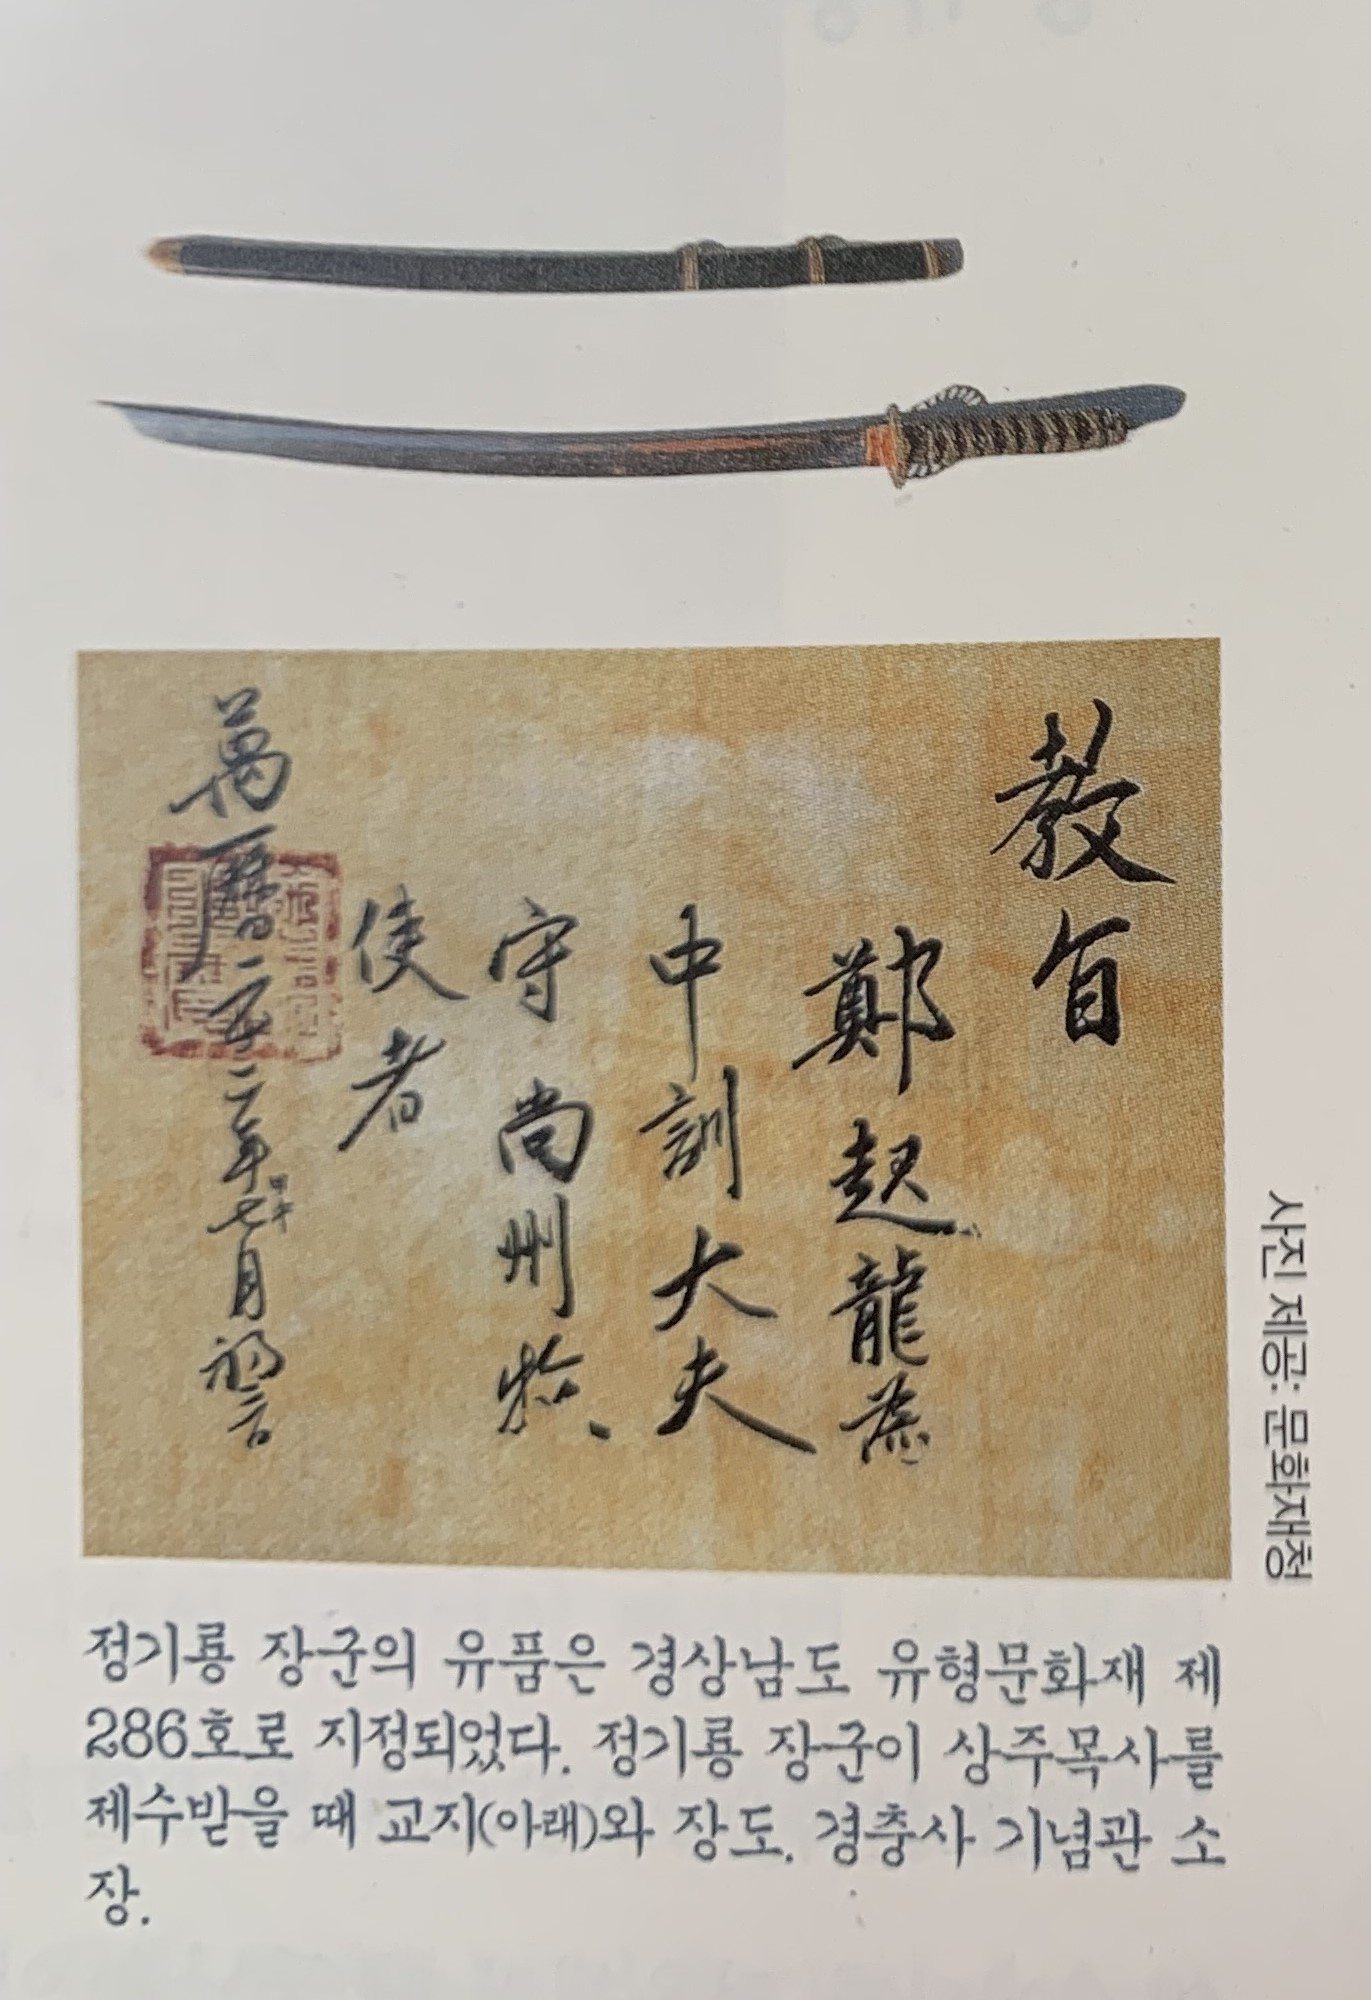 教旨
鄭起龍為
中訓大夫
守尚州牧
使者
萬曆二十二年七月初六日
정기룡 장군의 유품은 경상남도 유형문화재 제
286호로 지정되었다. 정기룡 장군이 상주목사를
제수받을 때 교지(아래)와 장도. 경충사 기념관 소
장.
사진 제공: 문화재청